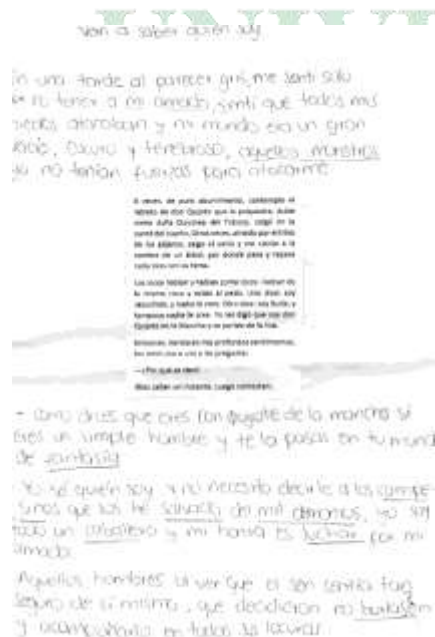 Van a saber quién soy
in una tarde al parecer gris, me sentí solo
no tener a mi amada, sentí que todos mis
miedos y mi mundo era un gran
vacio, oscuro y tenebroso, aquellos monstros
ya no tenían fuerzas para atacarme
A veces, de puro aburrimiento, contemplo el
retrato de don Quijote que
como doña Dulcinea del Toboso, colgó en la
pared del cuarto. Otras veces, atraído por el trino
de los pájaros, salgo al patio y me siento a la
sombra de un árbol, por donde pasa y repasa
Los locos hablan y hablan como locos. Hablan de
lo mismo, rosa y
Quijote de la Mancha y se parten de la risa.
Entonces, herido en mis profundos sentimientos,
los miro uno a uno y les pregunto:
—¿Por qué se ríen?
Ellos callan un instante. Luego contestan:
- Como dices que eres Don Quijote de la mancha si
eres un simple hombre y te la pasas en tu mundo
de fantasía
Yo sé quién soy y no necesito decirle a los campe-
sinos que los he salvado de mil demonios, yo soy
todo un caballero y mi honra es luchar por mi
amada.
Aquellos hombres al ver que el sen sentía tan
seguro de sí mismo, que decidieron no burlasen
y acompañarlo en todas su locuras.